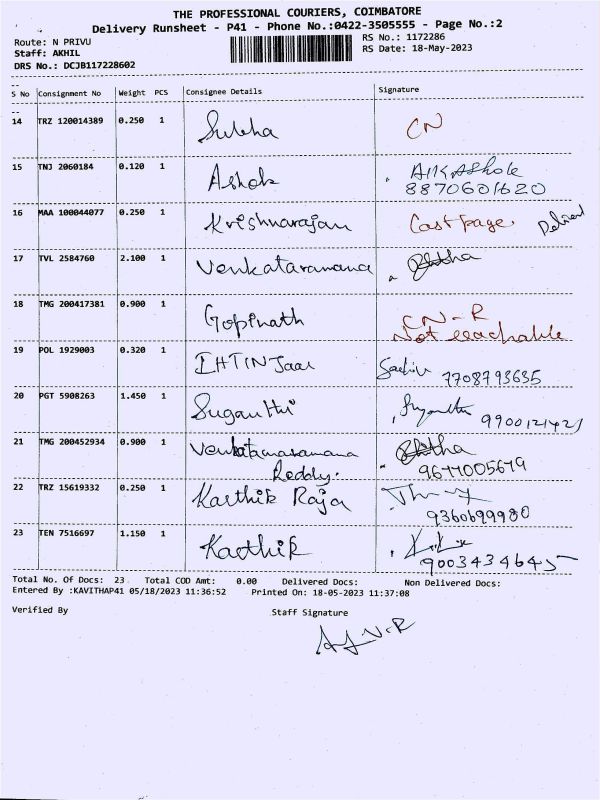 THE PROFESSIONAL COURIERS, COIMBATORE
Delivery Runsheet - P41 - Phone No.:0422-3505555 - Page No.:2
Route: N PRIVU
Staff: AKHIL
DRS No.: DCJB117228602
RS No.: 1172286
RS Date: 18-May-2023
S No Consignment No Weight PCS Consignee Details Signature
14 TRZ 120014389 0.250 1 Subha CN
15 TNJ 2060184 0.120 1 Ashok Ashok
8870601620
16 MAA 100044077 0.250 1 Krishnarajan Cast page. Delivered
17 TVL 2584760 2.100 1 Venkataramana
18 TMG 200417381 0.900 1 Gopinath CN-R
Not reachable
19 POL 1929003 0.320 1 IHTINJaar 7708793635
20 PGT 5908263 1.450 1 Suganthi 9900121421
21 TMG 200452934 0.900 1 Venkataramana
Reddy. 9677005679
22 TRZ 15619332 0.250 1 Karthik Raja
9360699980
23 TEN 7516697 1.150 1 Karthik
9003434645
Total No. Of Docs: 23 Total COD Amt: 0.00 Delivered Docs: Non Delivered Docs:
Entered By :KAVITHAP41 05/18/2023 11:36:52 Printed On: 18-05-2023 11:37:08
Verified By Staff Signature